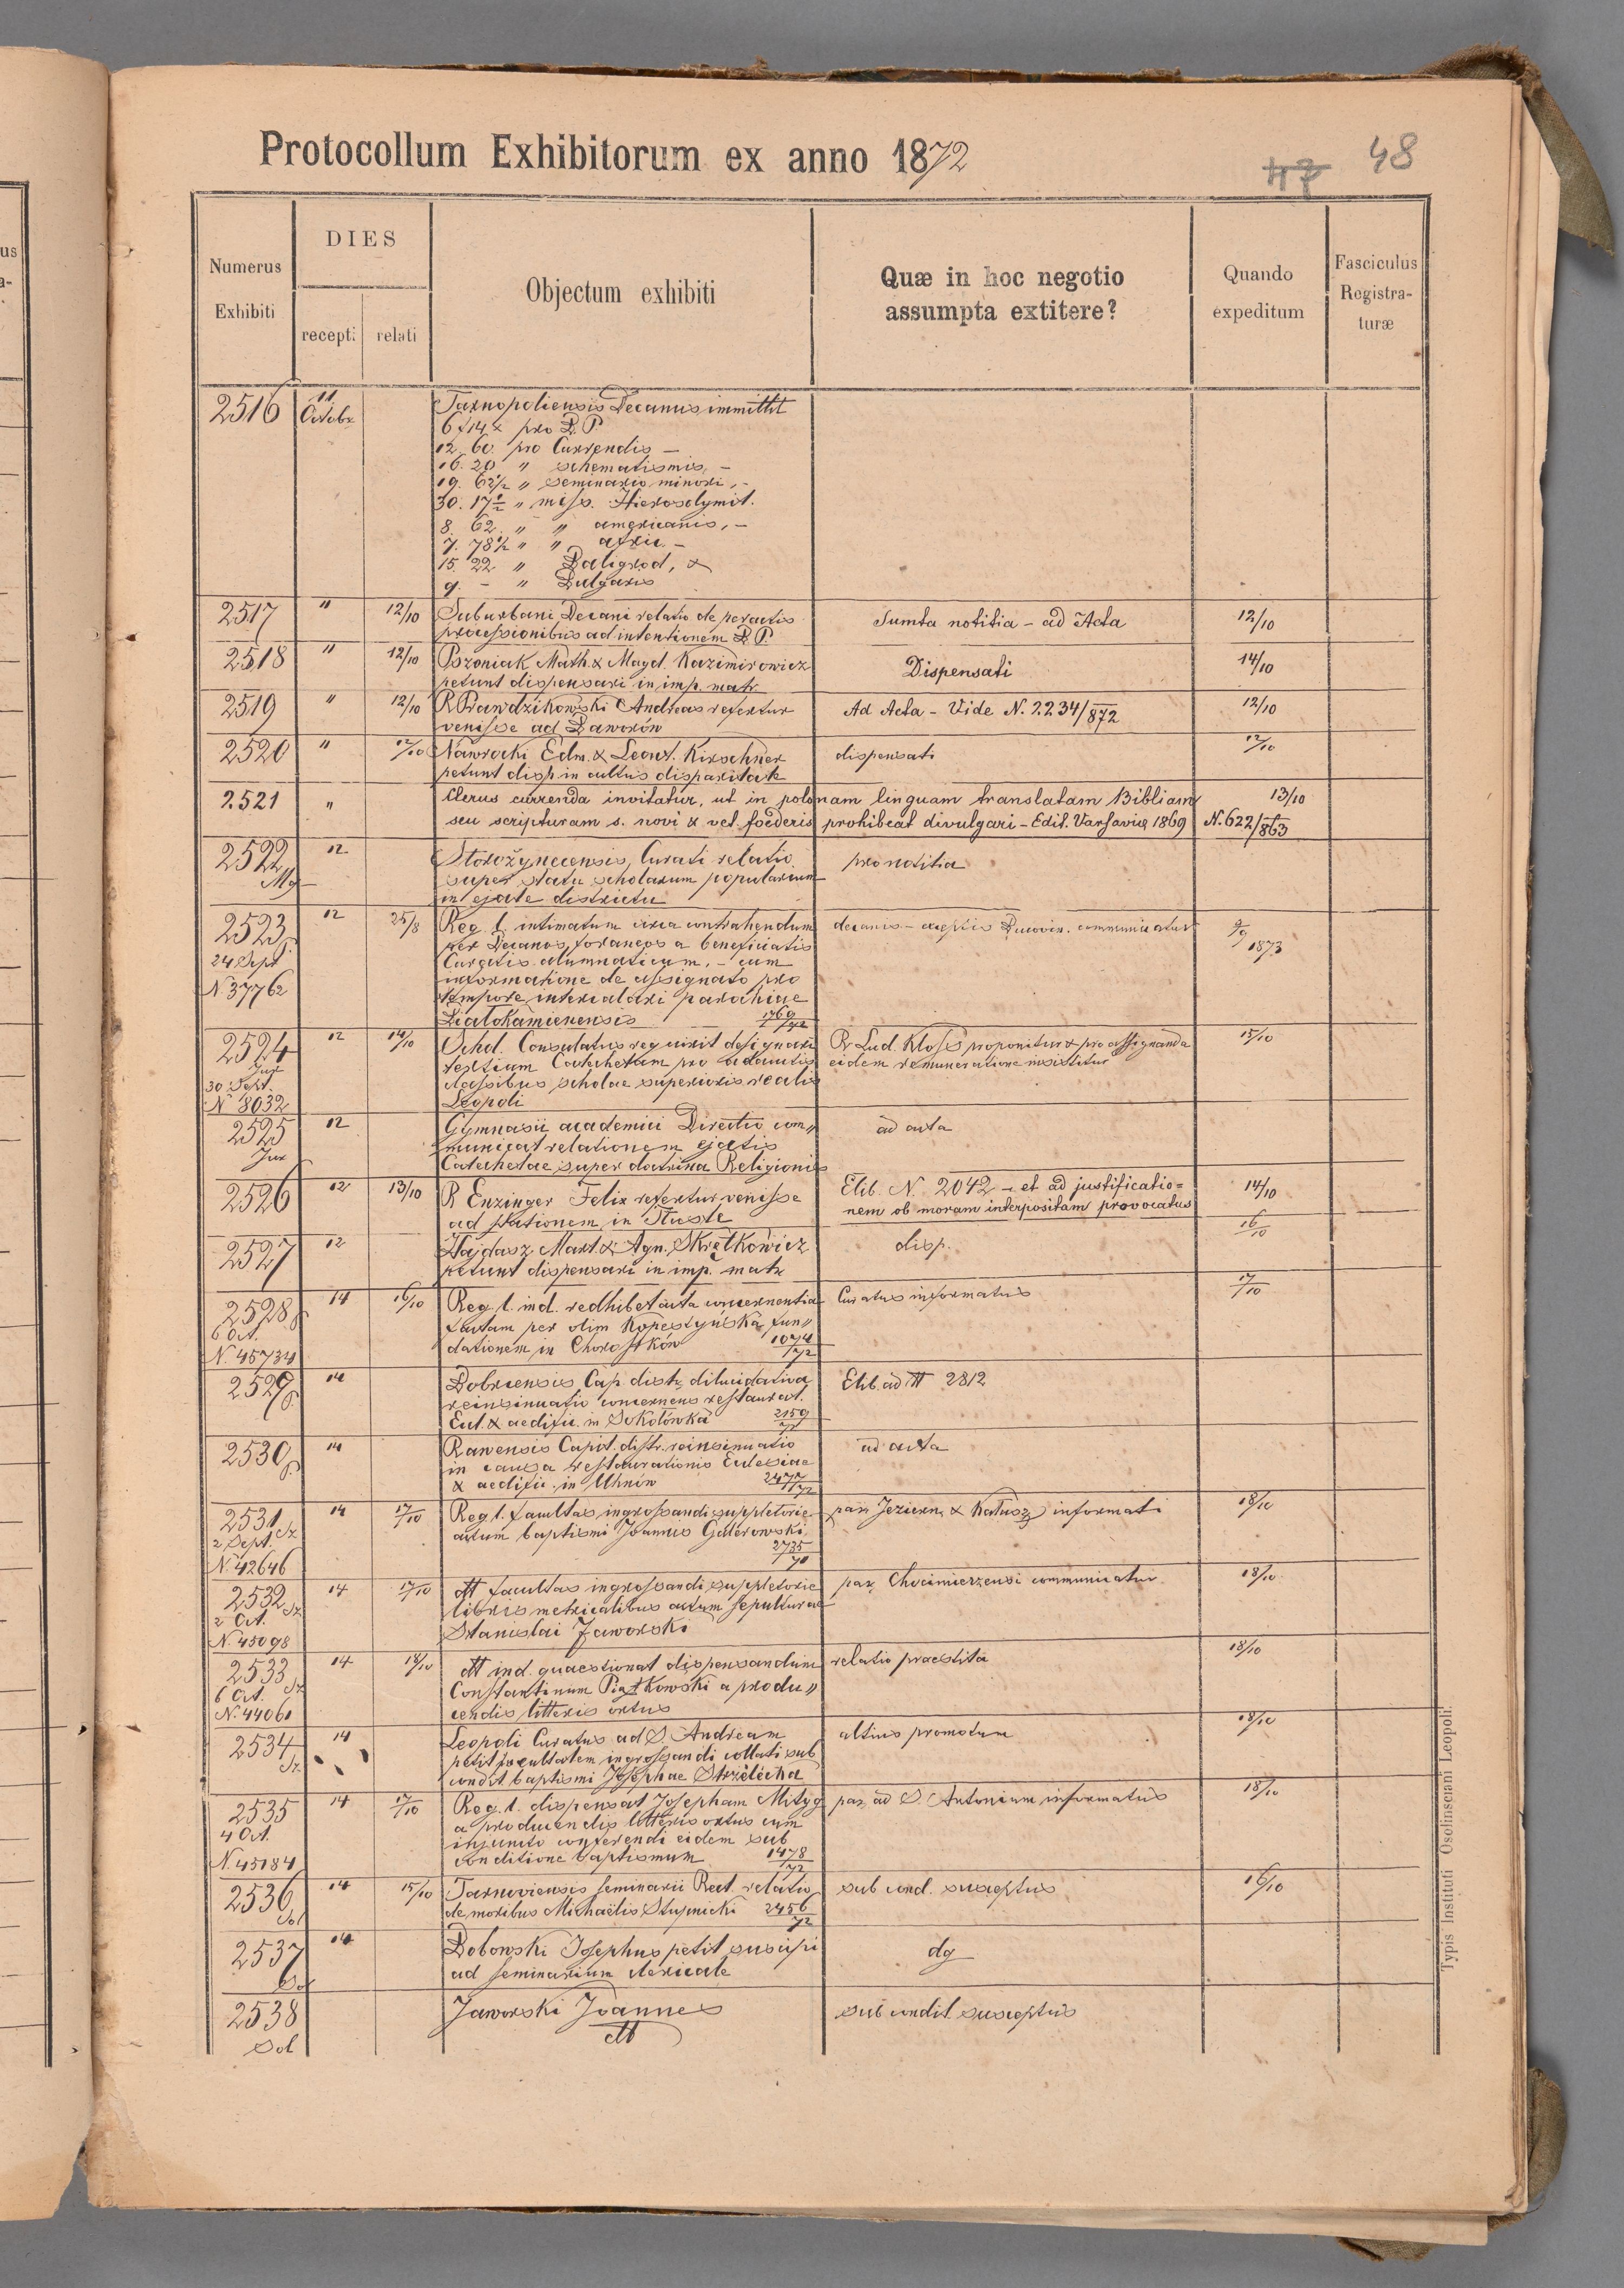 Protocollum Exhibitorum ex anno 1872
47 48
Numerus Exhibiti
DIES
recepti relati
Objectum exhibiti
Quæ in hoc negotio
assumpta extitere?
Quando
expeditum
Fasciculus
Registra-
turæ
2516 11 Octobr Tarnopoliensis Decanus immittit
6 f 14 x pro P. P
12. 60. pro Currendis —
16. 20 " schematismis, —
19. 62½ " seminario minori, —
30. 17½ " miss. Hierosolymit.
8. 62. " " americanis, —
7. 78½ " " afric. —
15. 22 " Baligrod, &
9. — " Bulgaris
2517 " 12/10 Suburbani Decani relatio de peractis Sumta notitia - ad Acta 12/10
processionibus ad intentionem P. P.
2518 " 12/10 Pszoniak Math. & Magd. Kazimirowicz Dispensati 14/10
petunt dispensari in imp. matr
2519 " 12/10 R Prawdzikowski Andreas refertur Ad Acta - Vide N. 2234/872 12/10
venisse ad Jaworów
2520 " 12/10 Nawrocki Edm. & Leont. Kirschner dispensati 12/10
petunt disp in cultus disparitate
2521 " Clerus currenda invitatur, ut in polonam linguam translatam Bibliam 13/10
seu scripturam s. novi & vet. foederis prohibeat divulgari - Edit. Varsaviæ 1869 N. 622/863
2522 12 Storożynecensis Curati relatio pro notitia
super statu scholarum popularium
in ejate districtu
2523 12 25/8 Reg. l. intimatum circa contrahendum decanis - exceptis Bucovin. communicatur 9/9 1873
per Decanos foraneos a beneficiatis
24 Sept Curatis alumnaticum, - cum
N 37762 informatione de assignato pro
tempore intercalari parochiae
Białokamienensis 1769/72
2524 12 14/10 Schol. Consulatus requirit designari R Lud. Kloss proponitur & pro assignanda 15/10
Jur tertium Catechetam pro eidem remuneratione insistitur
30 Sept. classibus scholae superioris realis
N 8032 Leopoli
2525 12 Gymnasii academici Directio com„ ad acta
Jur municat relationem ejatis
Catechetae super doctrina Religionis
2526 12 13/10 R Enzinger Felix refertur venisse Elib. N. 2042 - et ad justificatio= 14/10
ad stationem in Tłuste nem ob moram interpositam provocatus
2527 12 Hajdasz Mart. & Agn. Skrętkowicz disp. 16/10
petunt dispensari in imp. matr
2528 14 16/10 Reg. l. ind. redhibet acta concernentia Curatus informatus 17/10
6 Oct. factam per olim Kopestyńska fun„
N. 45734 dationem in Chorostków 1074/72
2529 14 Bobrcensis Cap. distr. dilucidativa Elib. ad N 2812
reinsinuatio concernens restaurat.
Eccl. & aedific. in Sokołówka 2159/72
2530 14 Rawensis Capit. distr. reinsinuatio ad acta
in causa restaurationis Ecclesiae
& aedific. in Uhnów 2477/72
2531 14 17/10 Reg. l. facultas ingrossandi suppletorie par. Jeziern. & Kałusz informati 18/10
Sz 2 Sept. actum baptismi Joannis Galerowski
N. 42646 2735/70
2532 14 17/10 dtt facultas ingrossandi suppletorie par. Chocimierzensi communicatur 18/10
Sz 2 Oct. libris metricalibus actum sepulturae
N. 45098 Stanislai Jaworski
2533 14 18/10 dtt ind. quaestionat dispensandum relatio praestita 18/10
Sz 6 Oct. Constantinum Piątkowski a produ„
N. 44061 cendis litteris ortus
2534 14 Leopoli Curatus ad S. Andream altius promotum 18/10
Sz petit facultatem ingrossandi collati sub
condit baptismi Josephae Strzelecka
2535 14 17/10 Reg. l. dispensat Josepham Mityg par. ad S. Antonium informatus 18/10
4 Oct. a producendis litteris ortus cum
injuncto conferendi eidem sub
N. 45184 conditione baptismum 1478/72
2536 14 15/10 Tarnoviensis seminarii Rect. relatio sub cond. susceptus 16/10
Sol de moribus Michaëlis Stupnicki 2456/72
2537 14 Bobowski Josephus petit suscipi dg
Sol ad seminarium clericale
2538 Jaworski Joannes sub condit. susceptus
Sol dtt
Typis Instituti Ossolinsciani Leopoli.